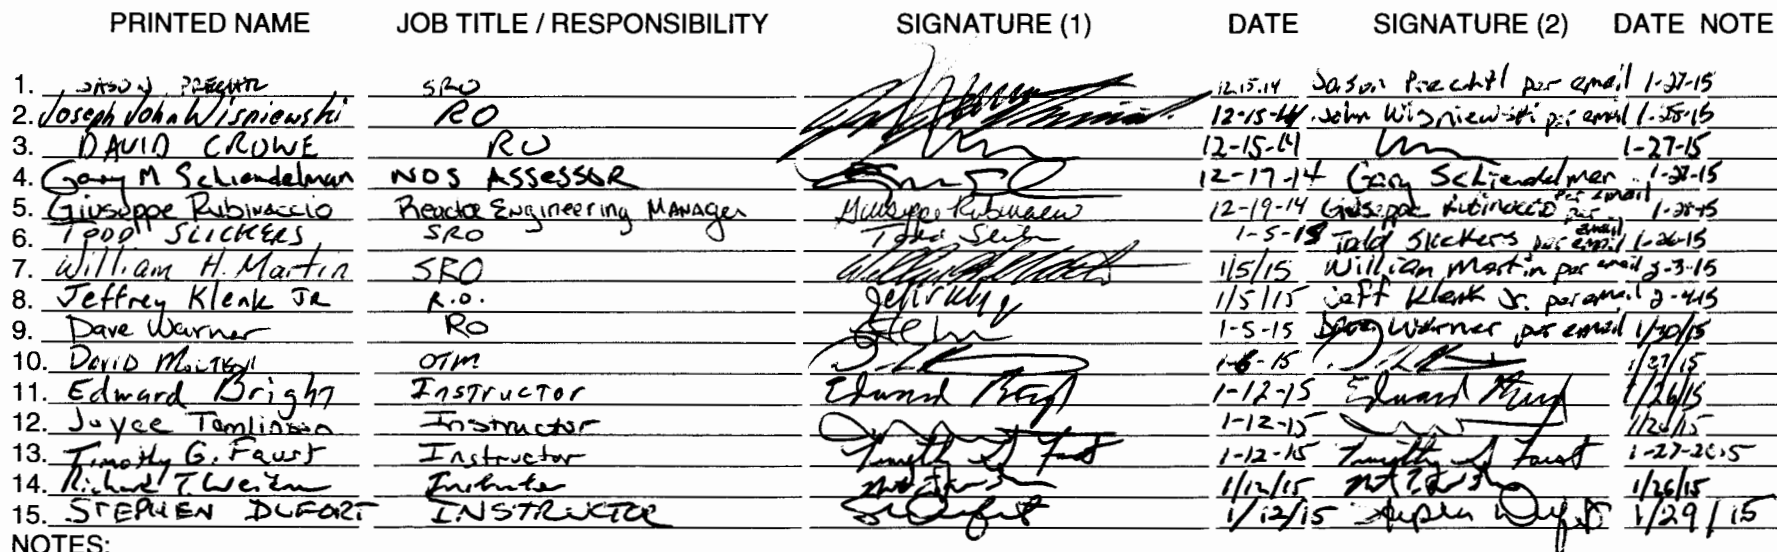 PRINTED NAME JOB TITLE / RESPONSIBILITY SIGNATURE (1) DATE SIGNATURE (2) DATE NOTE
1. JASON PRECHTL SRO 12.15.14 Jason Prechtl per email 1-27-15
2. Joseph John Wisniewski RO 12-15-14 John Wisniewski per email 1-28-15
3. DAVID CROWE RO 12-15-14 1-27-15
4. Gary M Schiendelman NOS ASSESSOR 12-17-14 Gary Schiendelman per email 1-27-15
5. Giuseppe Rubinaccio Reactor Engineering Manager Giuseppe Rubinaccio 12-19-14 Giuseppe Rubinaccio per email 1-28-15
6. TODD SLICKERS SRO 1-5-15 Todd Slickers per email 1-26-15
7. William H. Martin SRO 1/5/15 William Martin per email 2-3-15
8. Jeffrey Klenk JR R.O. 1/5/15 Jeff Klenk Jr. per email 2-4-15
9. Dave Warner RO 1-5-15 Dave Warner per email 1/30/15
10. DAVID OTM 1-6-15 1/27/15
11. Edward Bright Instructor 1-12-15 1/26/15
12. Joyce Tomlinson Instructor 1-12-15 1/26/15
13. Timothy G. Faust Instructor Timothy G Faust 1-12-15 Timothy G Faust 1-27-2015
14. Richard T. Instructor 1/12/15 1/26/15
15. STEPHEN DUFORT INSTRUCTOR 1/12/15 Stephen Dufort 1/29/15
NOTES: